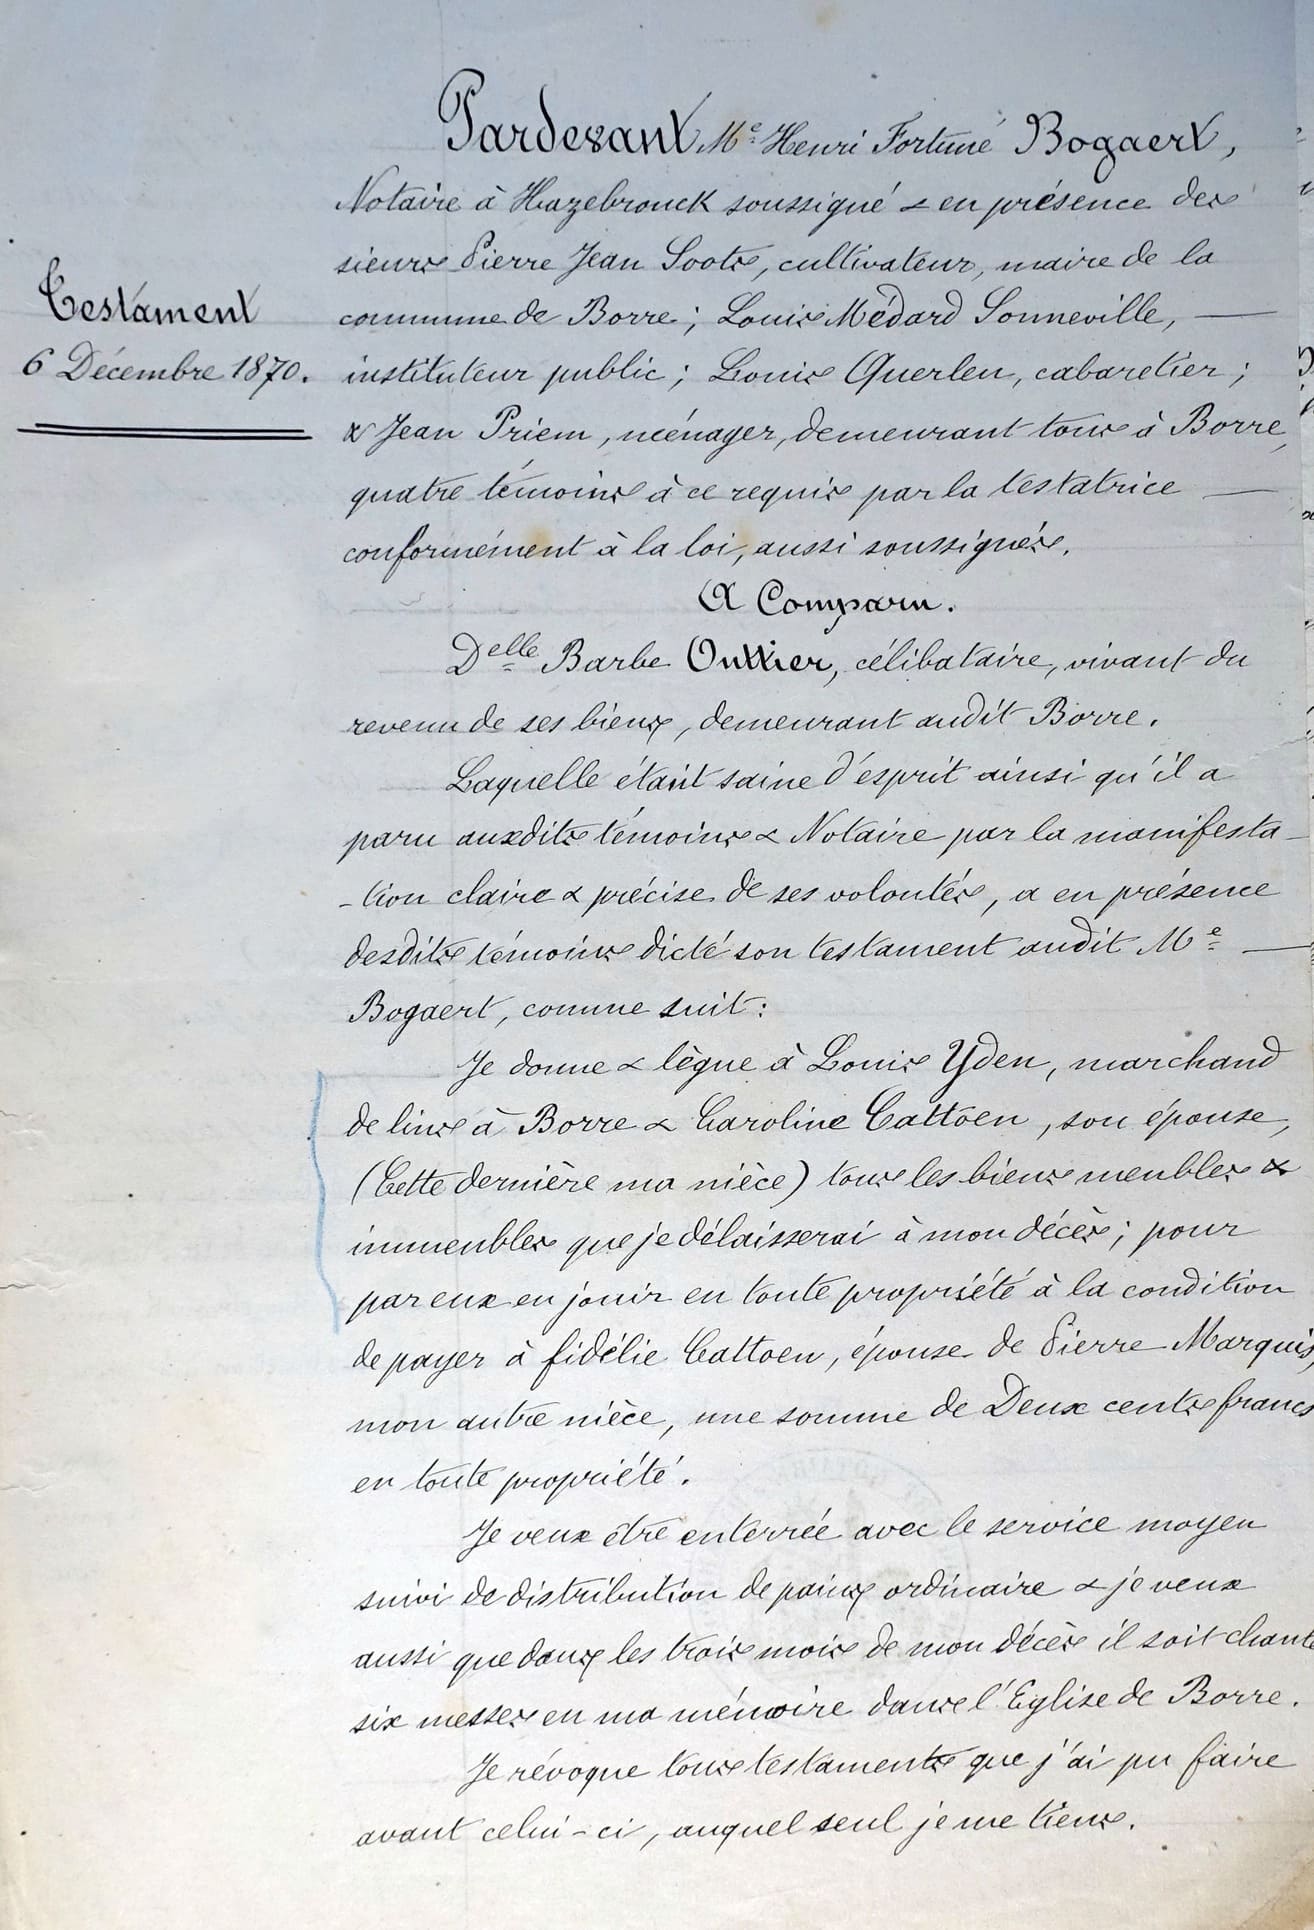 Pardevant Me Henri Fortuné Bogaert,
Notaire à Hazebrouck soussigné & en présence des
sieurs Pierre Jean Soots, cultivateur, maire de la
commune de Borre ; Louis Médard Sonneville,
Testament
6 Décembre 1870.
instituteur public ; Louis Querleu, cabaretier ;
& Jean Priem, ménager, demeurant tous à Borre,
quatre témoins à ce requis par la testatrice
conformément à la loi, aussi soussignés.
A Comparu.
Delle Barbe Outtier, célibataire, vivant du
revenu de ses biens, demeurant audit Borre.
Laquelle étant saine d'esprit ainsi qu'il a
paru auxdits témoins & Notaire par la manifesta-
-tion claire & précise de ses volontés, a en présence
desdits témoins dicté son testament audit Me
Bogaert, comme suit :
Je donne & lègue à Louis Yden, marchand
de lins à Borre & Caroline Cattoen, son épouse,
(Cette dernière ma nièce) tous les biens meubles &
immeubles que je délaisserai à mon décès ; pour
par eux en jouir en toute propriété à la condition
de payer à fidélie Cattoen, épouse de Pierre Marquis,
mon autre nièce, une somme de Deux cents francs
en toute propriété.
Je veux être enterrée avec le service moyen
suivi de distribution de pains ordinaire & je veux
aussi que dans les trois mois de mon décès il soit chanté
six messes en ma mémoire dans l'Eglise de Borre.
Je révoque tous testaments que j'ai pu faire
avant celui-ci, auquel seul je me tiens.